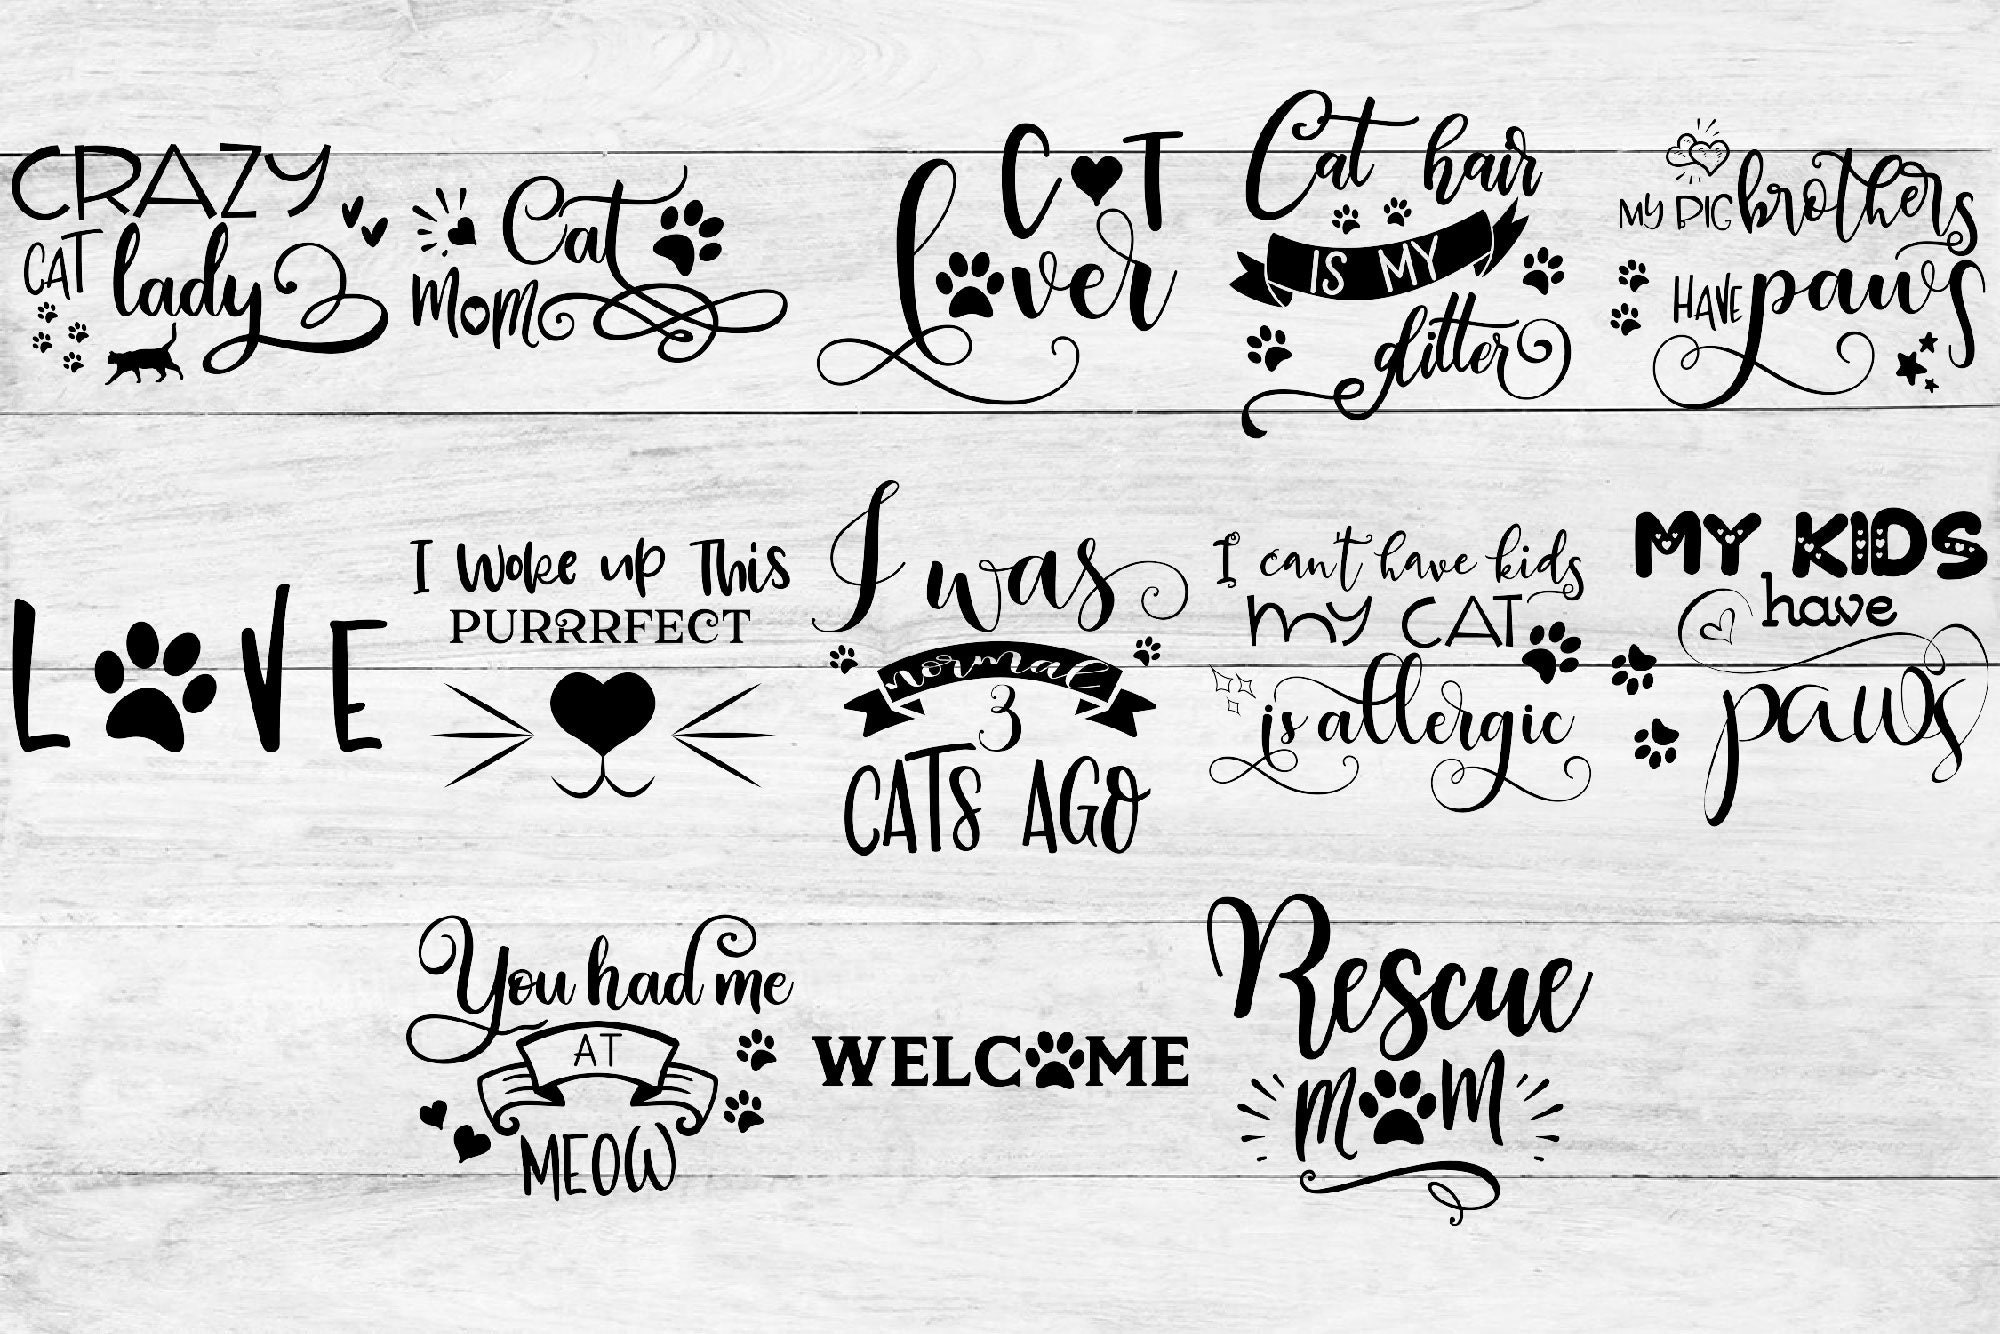 CRAZY
CAT lady
Cat
MOM
CAT
Lover
Cat hair
IS MY
glitter
MY BIG brothers
HAVE paws
LOVE
I woke up This
PURRRFECT
I was
normal
3
CATS AGO
I can't have kids
MY CAT
is allergic
MY KIDS
have
paws
You had me
AT
MEOW
WELCOME
Rescue
MOM